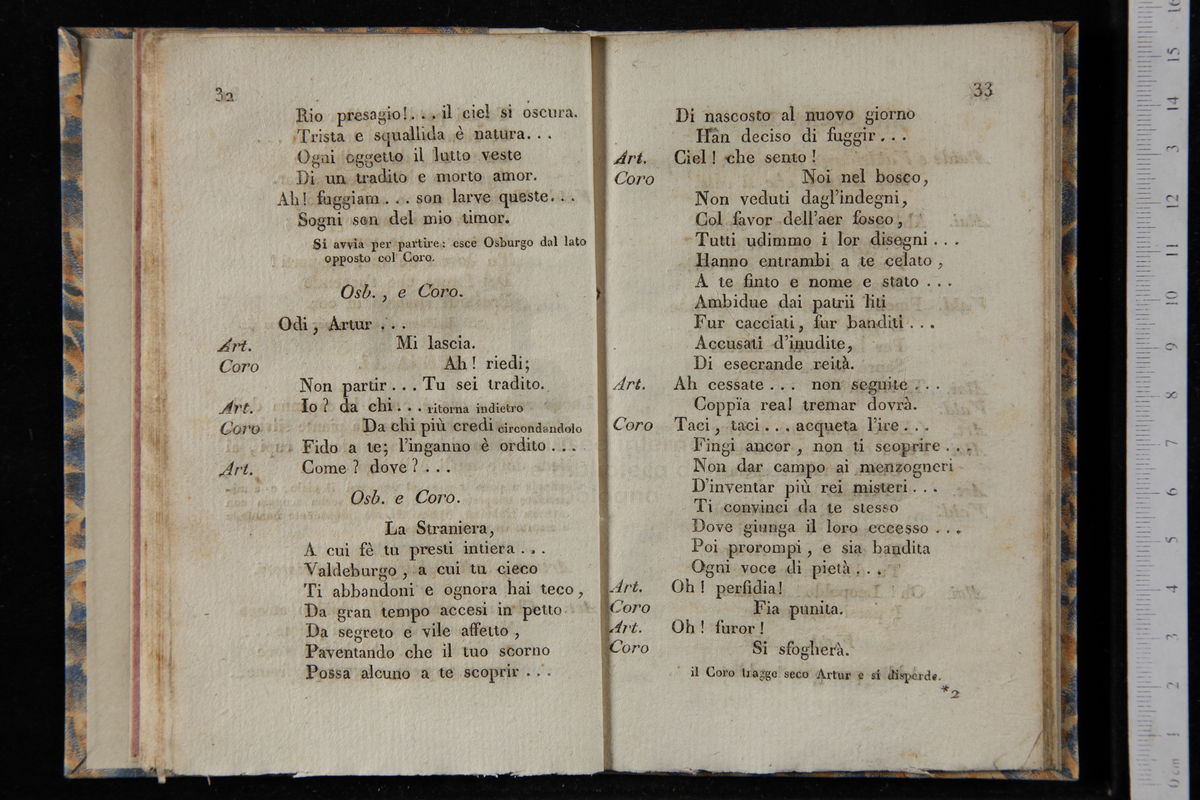 32
Rio presagio!... il ciel si oscura.
Trista e squallida è natura...
Ogni oggetto il lutto veste
Di un tradito e morto amor.
Ah! fuggiam... son larve queste...
Sogni son del mio timor.
Si avvia per partire: esce Osburgo dal lato
opposto col Coro.
Osb., e Coro.
Odi, Artur...
Art. Mi lascia.
Coro Ah! riedi;
Non partir... Tu sei tradito.
Art. Io? da chi... ritorna indietro
Coro Da chi più credi circondandolo
Fido a te; l'inganno è ordito...
Art. Come? dove?...
Osb. e Coro.
La Straniera,
A cui fè tu presti intiera...
Valdeburgo, a cui tu cieco
Ti abbandoni e ognora hai teco,
Da gran tempo accesi in petto
Da segreto e vile affetto,
Paventando che il tuo scorno
Possa alcuno a te scoprir...
33
Di nascosto al nuovo giorno
Han deciso di fuggir...
Art. Ciel! che sento!
Coro Noi nel bosco,
Non veduti dagl'indegni,
Col favor dell'aer fosco,
Tutti udimmo i lor disegni...
Hanno entrambi a te celato,
A te finto e nome e stato...
Ambidue dai patrii liti
Fur cacciati, fur banditi...
Accusati d'inudite,
Di esecrande reità.
Art. Ah cessate... non seguite...
Coppïa rea! tremar dovrà.
Coro Taci, taci... acqueta l'ire...
Fingi ancor, non ti scoprire...
Non dar campo ai menzogneri
D'inventar più rei misteri...
Ti convinci da te stesso
Dove giunga il loro eccesso...
Poi prorompi, e sia bandita
Ogni voce di pietà...
Art. Oh! perfidia!
Coro Fia punita.
Art. Oh! furor!
Coro Si sfogherà.
il Coro tragge seco Artur e si disperde.
*2